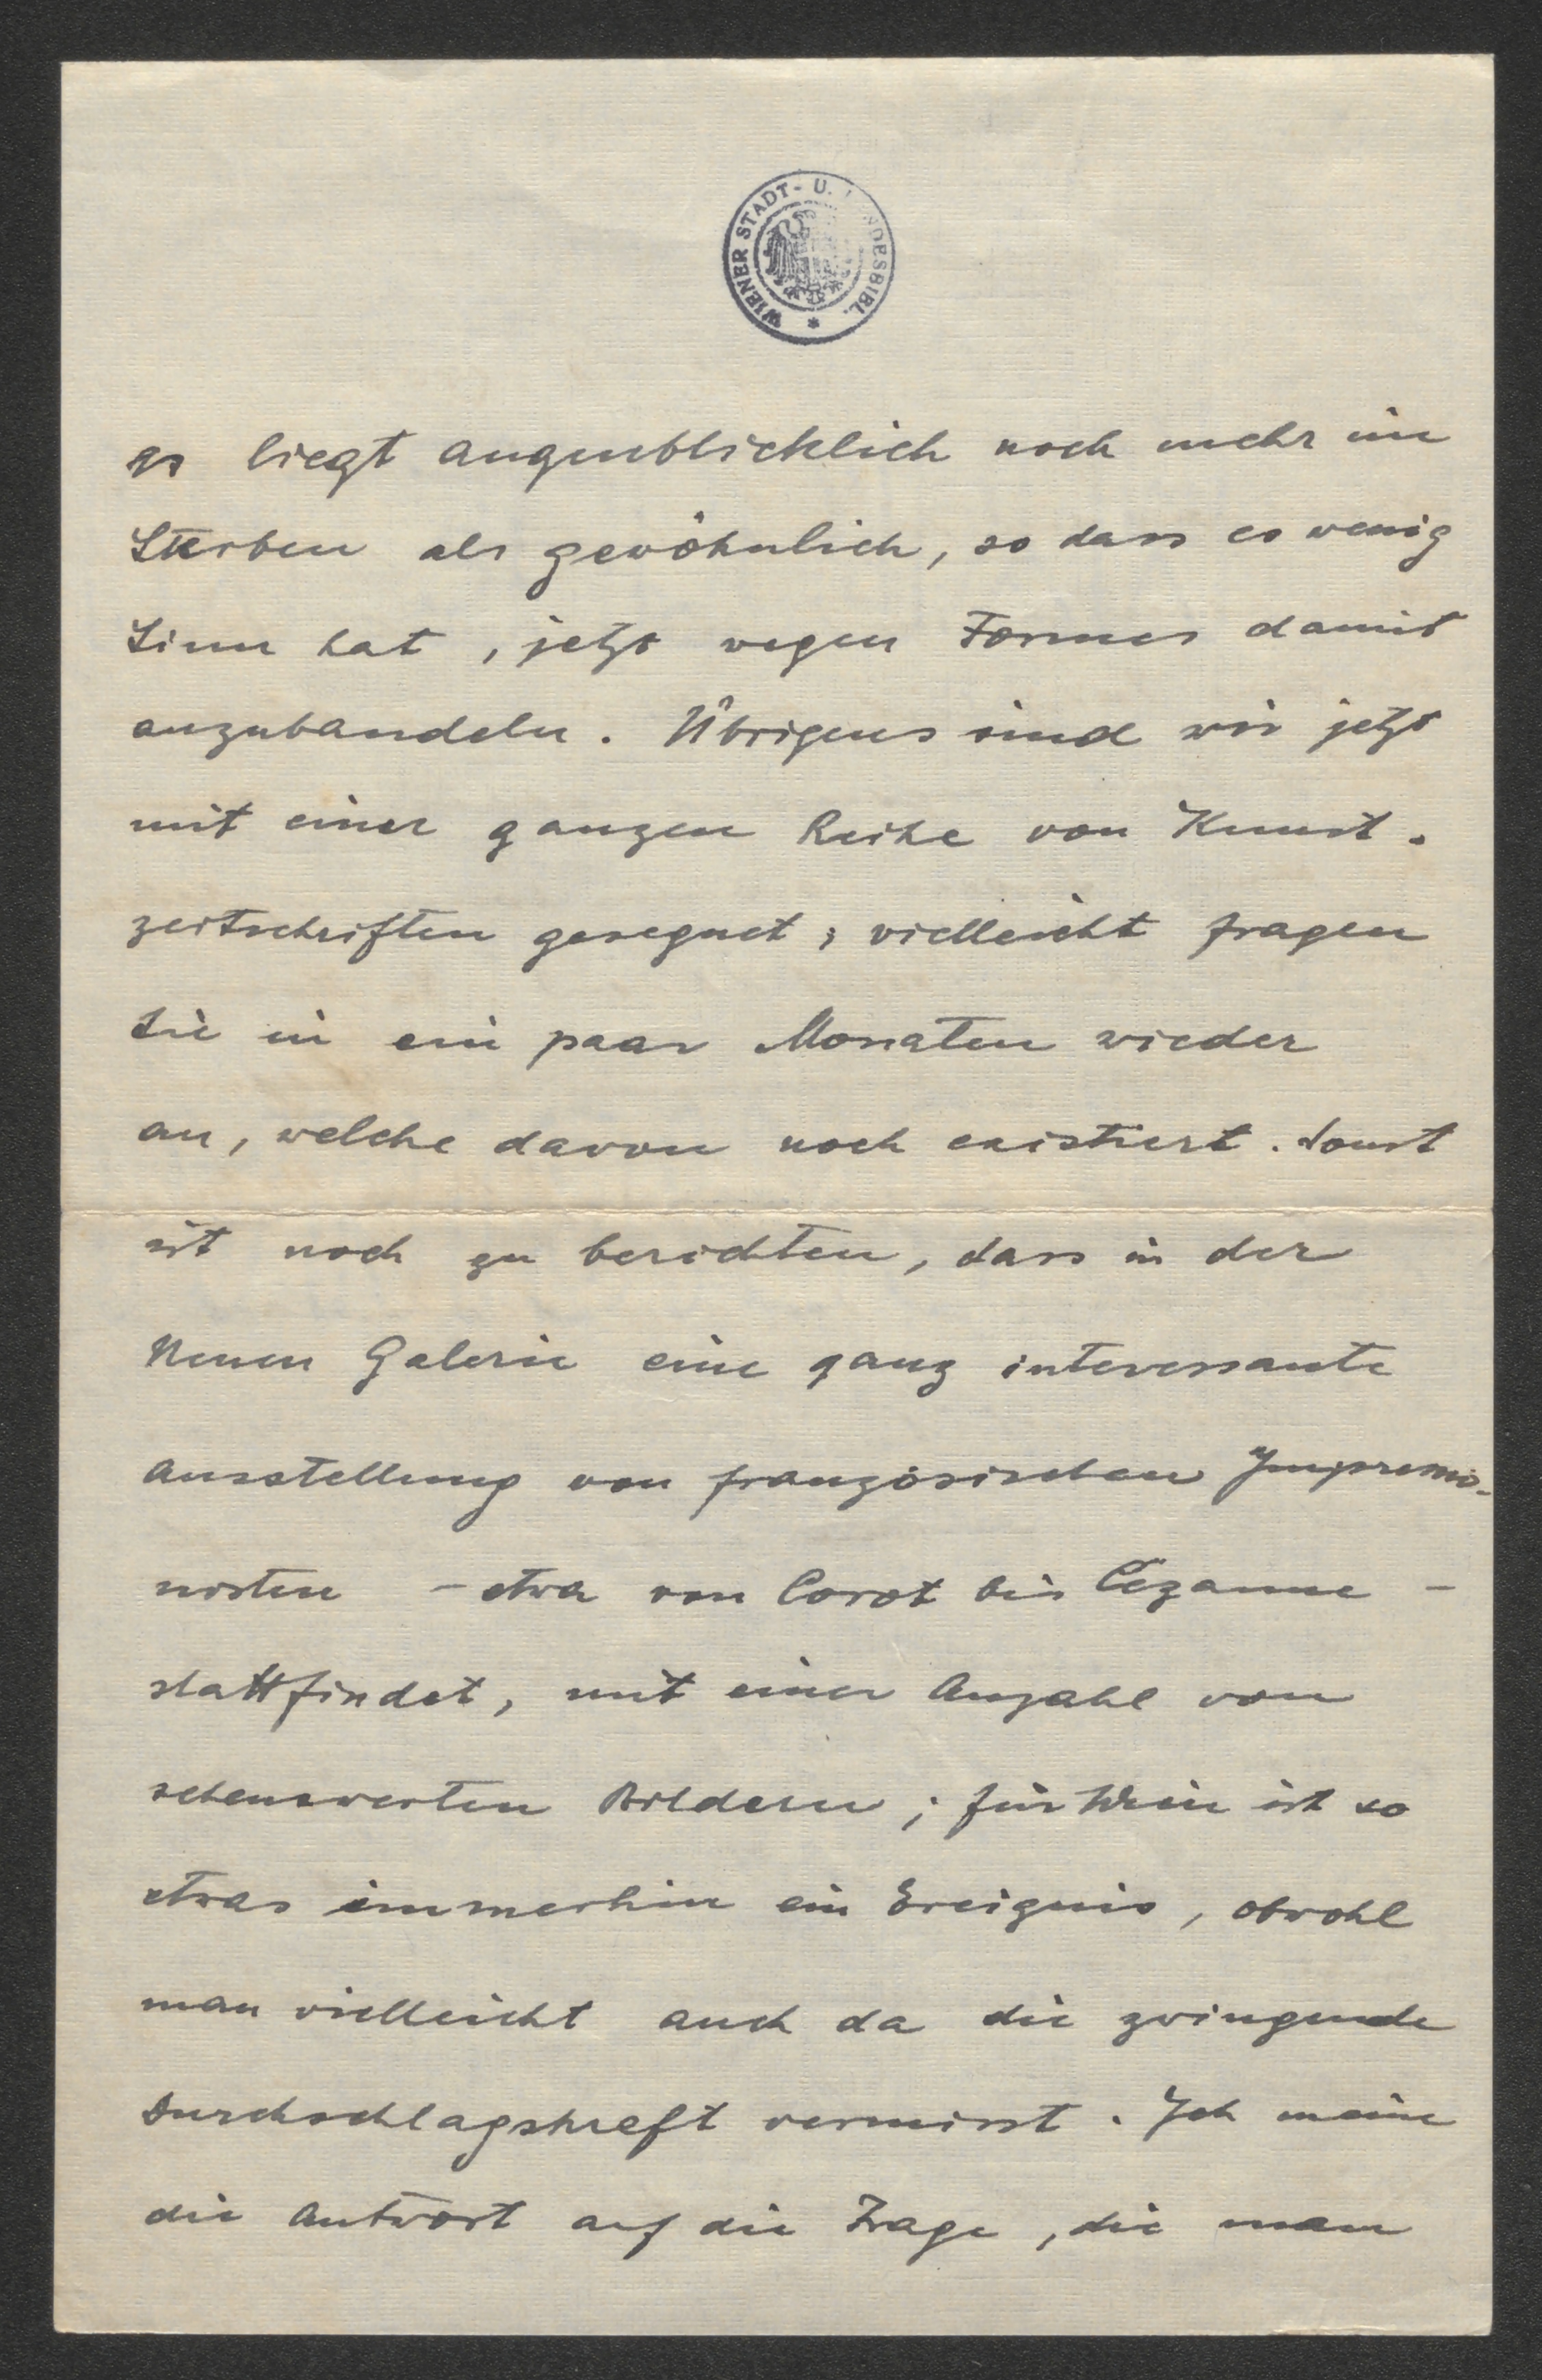 WIENER STADT- U. LANDESBIBL. *
es liegt augenblicklich noch mehr im
Sterben als gewöhnlich, so dass es wenig
Sinn hat, jetzt wegen Formes damit
anzubandeln. Übrigens sind wir jetzt
mit einer ganzen Reihe von Kunst-
zeitschriften gesegnet; vielleicht fragen
Sie in ein paar Monaten wieder
an, welche davon noch existiert. Sonst
ist noch zu berichten, dass in der
Neuen Galerie eine ganz interessante
Ausstellung von französischen Impressio-
nisten – etwa von Corot bis Cézanne –
stattfindet, mit einer Anzahl von
sehenswerten Bildern; für Wien ist so
etwas immerhin ein Ereignis, obwohl
man vielleicht auch da die zwingende
Durchschlagskraft vermisst. Ich meine
die Antwort auf die Frage, die man